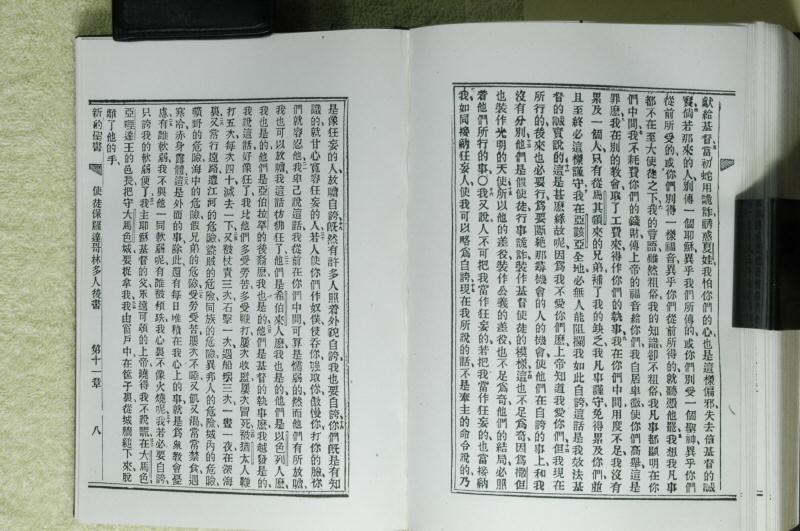 獻給基督當初蛇用詭詐誘惑夏娃我怕你們的心也是這樣偏邪失去信基督的誠
實倘若那來的人別傳一個耶穌異乎我們所傳的或你們別受一個聖神異乎你們
從前所受的或你們別得一樣福音異乎你們從前所得的就聽憑他罷我想我凡事
都不在至大使徒之下我的言語雖然粗俗我的知識卻不粗俗我凡事都顯明在你
們中間我不耗費你們的錢財傳上帝的福音給你們我自居卑微使你們高舉這是
罪麽我在別的教會取了工費來得作你們的執事我在你們中間用度不足我沒有
累及一個人只有從馬其頓來的兄弟補了我的缺乏我凡事謹守免得累及你們並
且至終必這樣謹守我在亞該亞全地必無人能阻攔我如此自誇這話是我效法基
督的誠實說的這是甚麽緣故呢因爲我不愛你們麽上帝知道我愛你們但我現在
所行的後來也必要行爲要斷絕那尋機會的人的機會使他們在自誇的事上和我
沒有分別他們是假使徒行事詭詐裝作基督使徒的模樣這也不足爲奇因爲撒但
也裝作光明的天使所以他的差役裝作公義的差役也不足爲奇他們的結局必照
着他們所行的事○我又說人不可把我當作任妄的若把我當作任妄的也當接納
我如同接納任妄人使我可以略爲自誇現在我所說的話不是奉主的命令說的乃
是像任妄的人放膽自誇旣然有許多人照着外貌自誇我也要自誇你們旣是有知
識的就甘心寬容任妄的人若人使你們作奴僕侵吞你強取你傲慢你打你的臉你
們就容忍他我卑己說這話我從前在你們中間可算是懦弱的然而他們有所放膽
我也可以放膽我這話彷彿狂了他們是希伯來人麽我也是的他們是以色列人麽
我也是的他們是亞伯拉罕的後裔麽我也是的他們是基督的執事麽我越發是的
我說這話好像狂了我比他們多受勞苦多受鞭打屢次收監屢次冒死被猶太人鞭
打五次每次四十減去一下又被杖責三次石擊一次遇船壞三次一晝一夜在深海
裏又常行遠路遭江河的危險盜賊的危險同族的危險異邦人的危險城內的危險
曠野的危險海中的危險假兄弟的危險受勞受苦屢次不睡又飢又渴常常禁食遇
寒冷赤身露體這是外面的事除此還有每日堆積在我心上的事就是爲衆教會憂
慮有誰軟弱我不與他一同軟弱呢有誰被絆跌我心裏不像火燒呢我若必要自誇
只誇我的軟弱便了我主耶穌基督的父永遠可頌的上帝曉得我不說謊在大馬色
亞哩達王的邑長把守大馬色城要捉拿我我由窗戶中在筐子裏從城牆縋下來脫
離了他的手
新約聖書 使徒保羅達哥林多人後書 第十一章 八